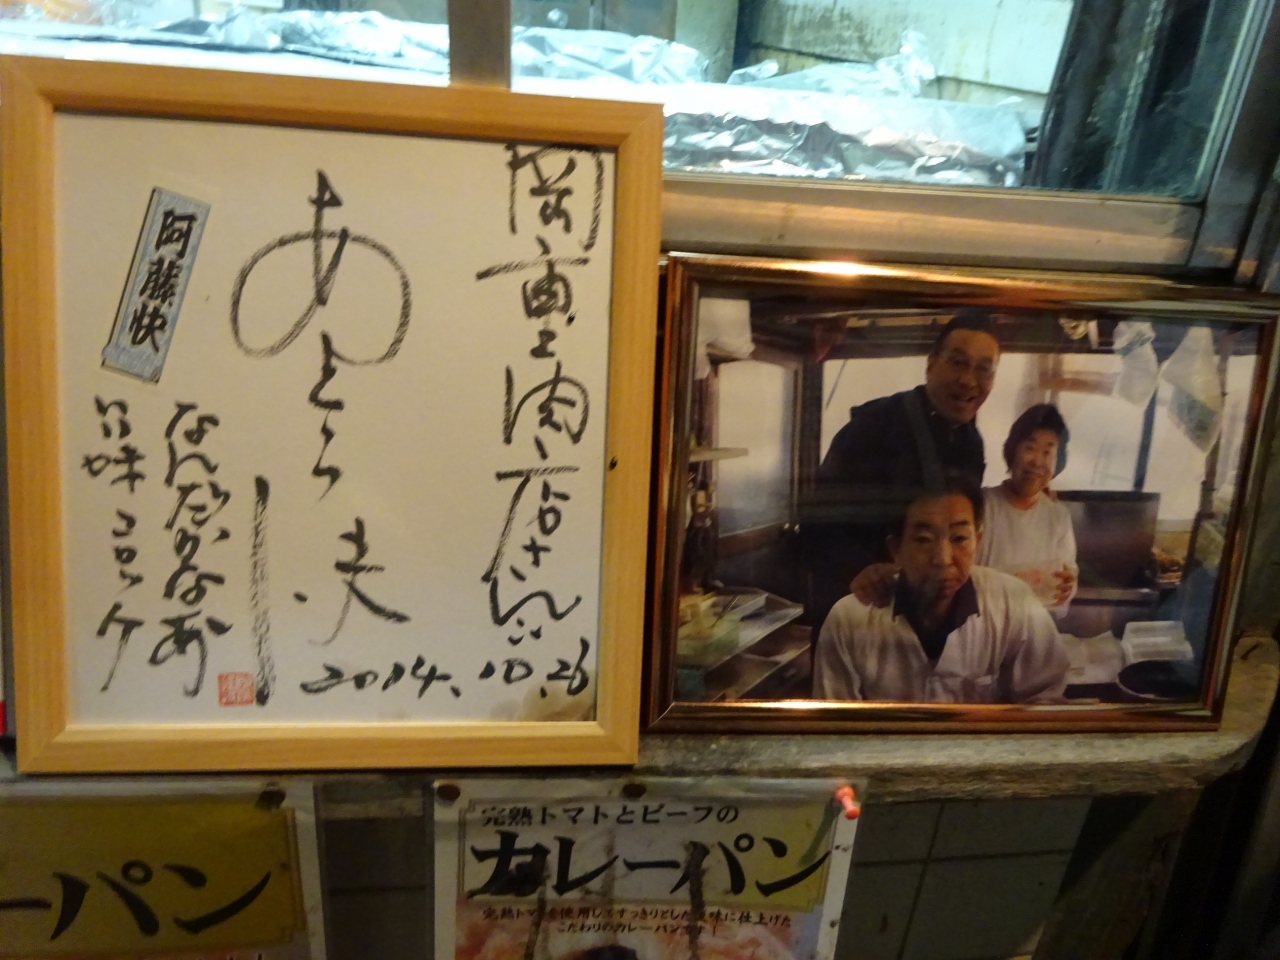 肉店さん江
2014.10.26
あとう 快
阿藤快
なんだかなあ
完熟トマトとビーフの
カレーパン
完熟トマトを使用してすっきりとした美味に仕上げた
こだわりのカレーパンです！
ーパン